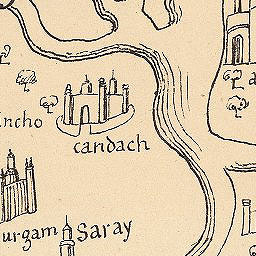 ncho
candach
urgam
Saray
a